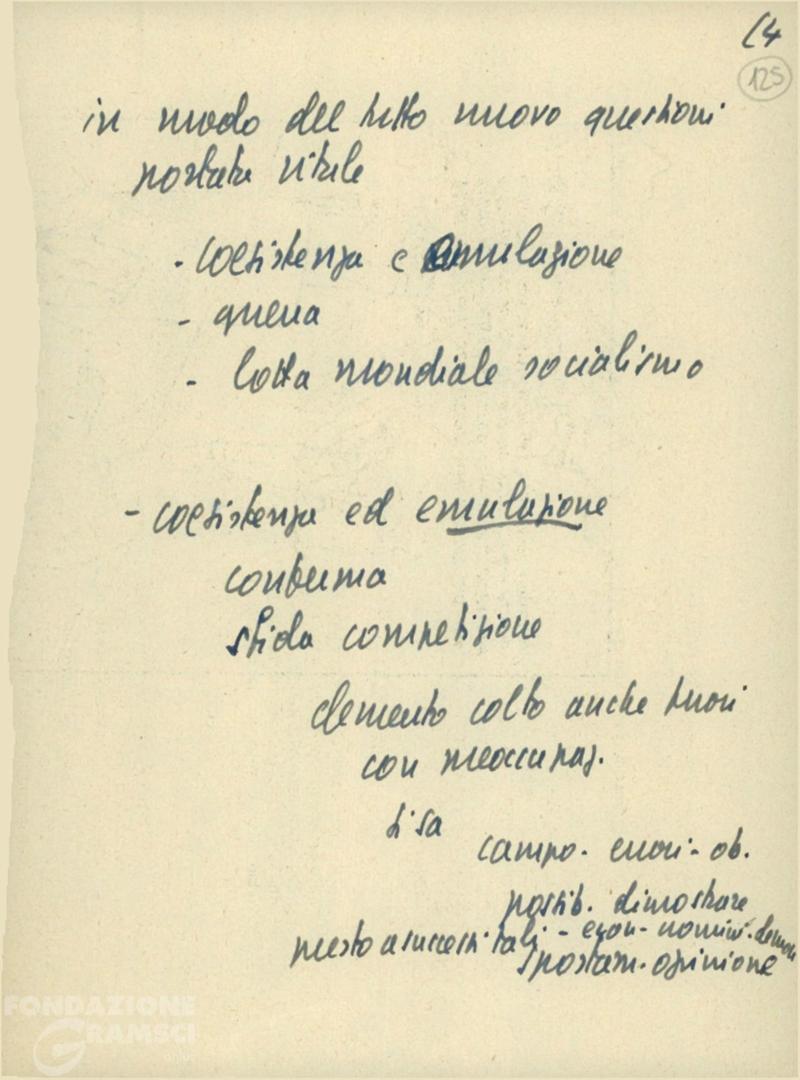 (4
125
in modo del tutto nuovo questioni
portata vitale
- coesistenza e emulazione
- guerra
- lotta mondiale socialismo
- coesistenza ed emulazione
conferma
sfida competizione
elemento colto anche fuori
con preoccupaz.
si sa
campo - errori - ob.
possib. dimostrare
presto a successi tali - econ -
spostam. opinione
FONDAZIONE
GRAMSCI